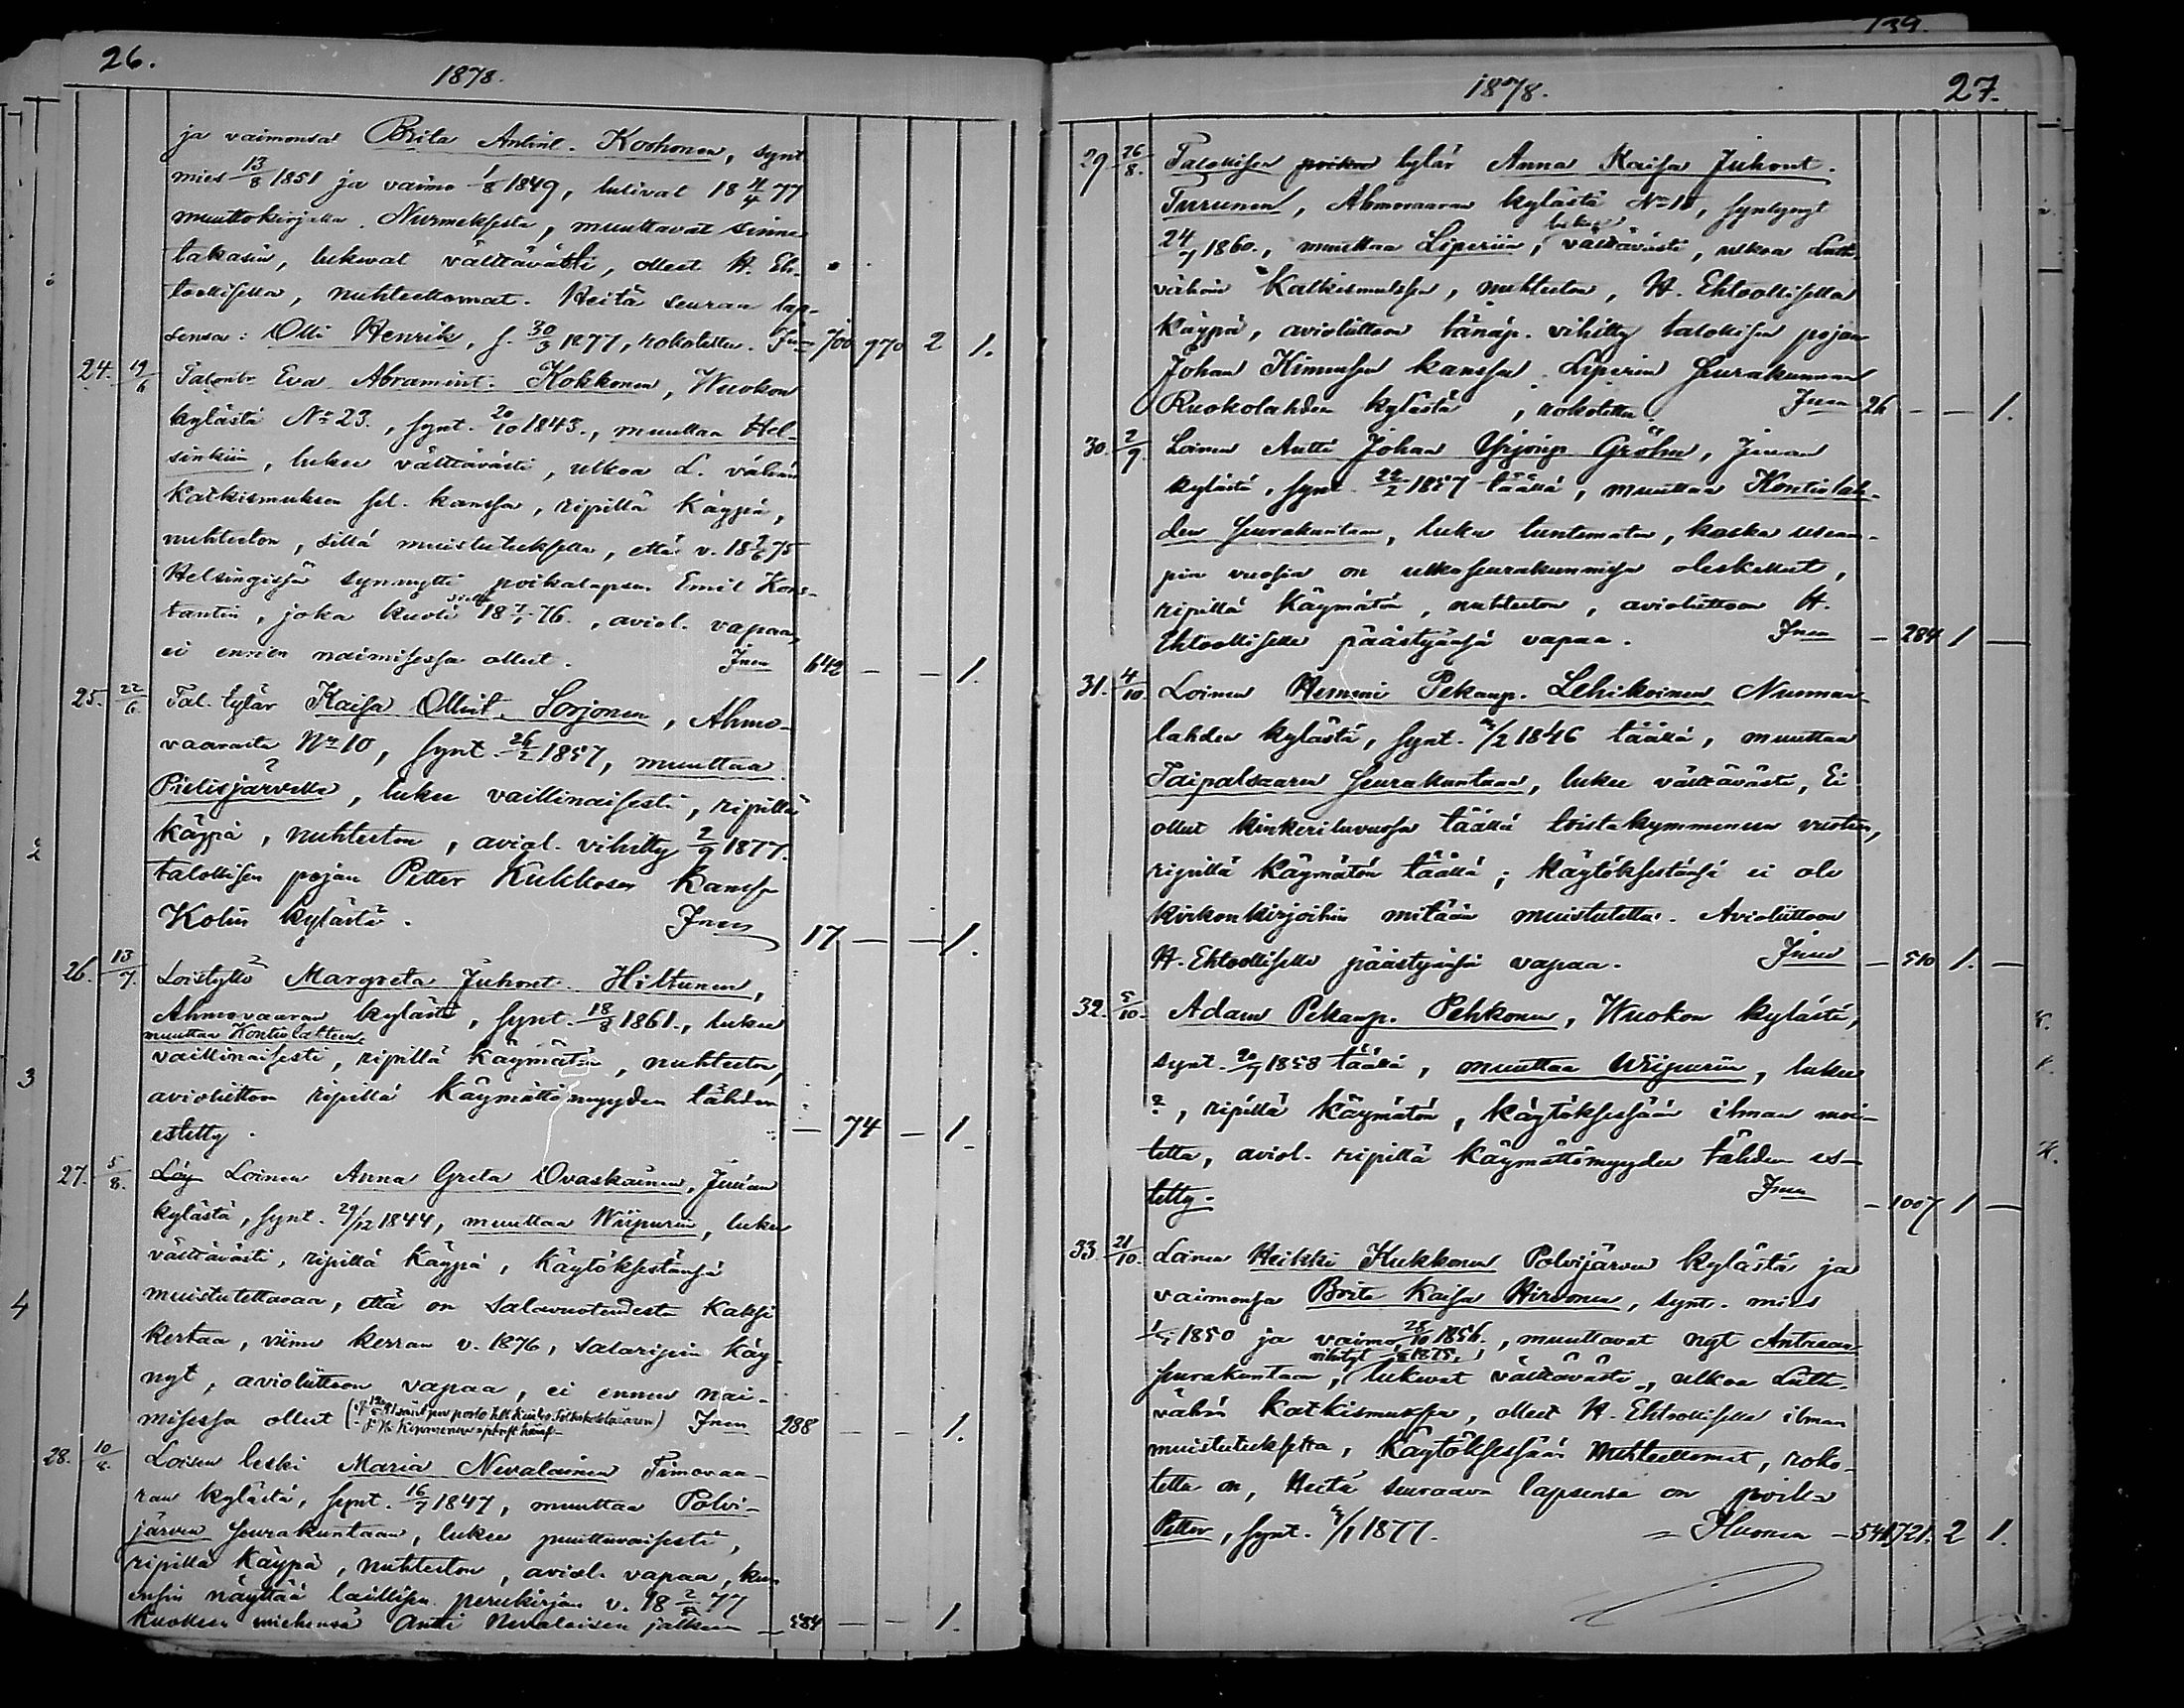 26.
1878.
ja vaimonsa Brita Antint. Korhonen, synt
mies 13/8 1851 ja vaimo 1/8 1849, tulivat 18 11/4 77
muuttokirjalla Nurmeksesta, muuttavat sinne
takasin, lukevat välttävästi, olleet H. Eh-
toollisella, nuhteettomat. Heitä seuraa lap-
sensa: Olli Henrik, s. 30/3 1877, rokotettu. 700 970 2 1.
24. 19/6 Talontr Eva Abramint. Kokkonen, Wuokon
kylästä No 23., synt. 20/10 1843., muuttaa Hel-
sinkiin, lukee välttävästi, ulkoa L. vähän
Katkismuksen sel. kanssa, ripillä käypä,
nuhteeton, sillä muistutuksella, että v. 18 7/6 75
Helsingissä synnytti poikalapsen Emil Kons-
tantin, joka kuoli siellä 18 7/7 76., aviol. vapaa,
ei ennen naimisessa ollut. Inen 642 — — 1.
25. 22/6 Tal. tytär Kaisa Ollint. Sorjonen, Ahmo-
vaarasta No 10, synt. 26/2 1857, muuttaa
Pielisjärvelle, lukee vaillinaisesti, ripillä
käypä, nuhteeton, aviol. vihitty 2/9 1877.
talollisen pojan Petter Kukkosen kanssa
Kolin kylästä. Inen 17 — — 1.
26. 13/7 Loistyttö Margreta Juhont. Hiltunen,
Ahmovaaran kylästä, synt. 18/8 1861., lukee
muuttaa Kontiolahteen
vaillinaisesti, ripillä käymätön, nuhteeton,
avioliittoon ripillä käymättömyyden tähden
estetty. — 74 — 1
27. 5/8. Löy Loinen Anna Greta Ovaskainen, Juuan
kylästä, synt. 29/12 1844, muuttaa Wiipuriin, lukee
välttävästi, ripillä käypä, käytöksestänsä
muistutettavaa, että on salavuoteudesta kaksi
kertaa, viime kerran v. 1876, salaripin käy-
nyt, avioliittoon vapaa, ei ennen nai-
misessa ollut Inen 288 — — 1.
28. 10/8. Loisen leski Maria Nevalainen Timovaa-
ran kylästä, synt. 16/7 1847, muuttaa Polvi-
järven seurakuntaan, lukee puuttuvaisesti,
ripillä käypä, nuhteeton, aviol. vapaa, kun
ensin näyttää laillisen perukirjan v. 18 2/5 77
kuolleen miehensä Antti Nevalaisen jälkeen — 584 — — 1.
139.
1878.
27.
29 26/8. Talollisen poikan tytär Anna Kaisa Juhont.
Turunen, Ahmovaaran kylästä No 10, syntynyt
24/7 1860., muuttaa Liperiin, lukee välttävästi, ulkoa Luth.
vähän Katkismuksen, nuhteeton, H. Ehtoollisella
käypä, avioliittoon tänäp. vihitty talollisen pojan
Johan Kinnusen kanssa Liperin Seurakunnan
Ruokolahden kylästä, rokotettu. Inen 26 — — 1.
30. 2/9. Loinen Antti Johan Yrjönp. Gröhn, Juuan
kylästä, synt. 22/2 1857 täällä, muuttaa Kontiolah-
den seurakuntaan, luku tuntematon, koska useam-
pia vuosia on ulkoseurakunnissa oleskellut,
ripillä käymätön, nuhteeton, avioliittoon H.
Ehtoolliselle päästyänsä vapaa. Inen — 284 1 —
31. 4/10. Loinen Hemmi Pekanp. Lehikoinen Nunnan-
lahden kylästä, synt. /2 1846 täällä, muuttaa
Taipalsaaren seurakuntaan, lukee välttävästi, Ei
ollut kinkeriluvussa täällä toistakymmeneen vuoteen,
ripillä käymätön täällä; käytöksestänsä ei ole
kirkonkirjoihin mitään muistutettu. Avioliittoon
H. Ehtoolliselle päästyänsä vapaa. Inen — 510 1. —
32. 5/10. Adam Pekanp. Pehkonen, Wuokon kylästä,
synt. 20/9 1858 täällä, muuttaa Wiipuriin, lukee
?, ripillä käymätön, käytöksessään ilman moi-
tetta, aviol. ripillä käymättömyyden tähden es-
tetty. Inen — 1007 1 —
33. 21/10. Loinen Heikki Kukkonen Polvijärven kylästä ja
vaimonsa Brita Kaisa Hirvonen, synt. mies
1850 ja vaimo 28/10 1856., muuttavat nyt Antrean
vihityt 1875,
seurakuntaan, lukevat välttävästi, ulkoa Luth.
vähän katkismuksen, olleet H. Ehtoollisella ilman
muistutuksetta, käytöksessään nuhteettomat, roko-
tetta on, Heitä seuraava lapsensa on poika
Petter, synt. /1 1877. — 541 721. 2 1.